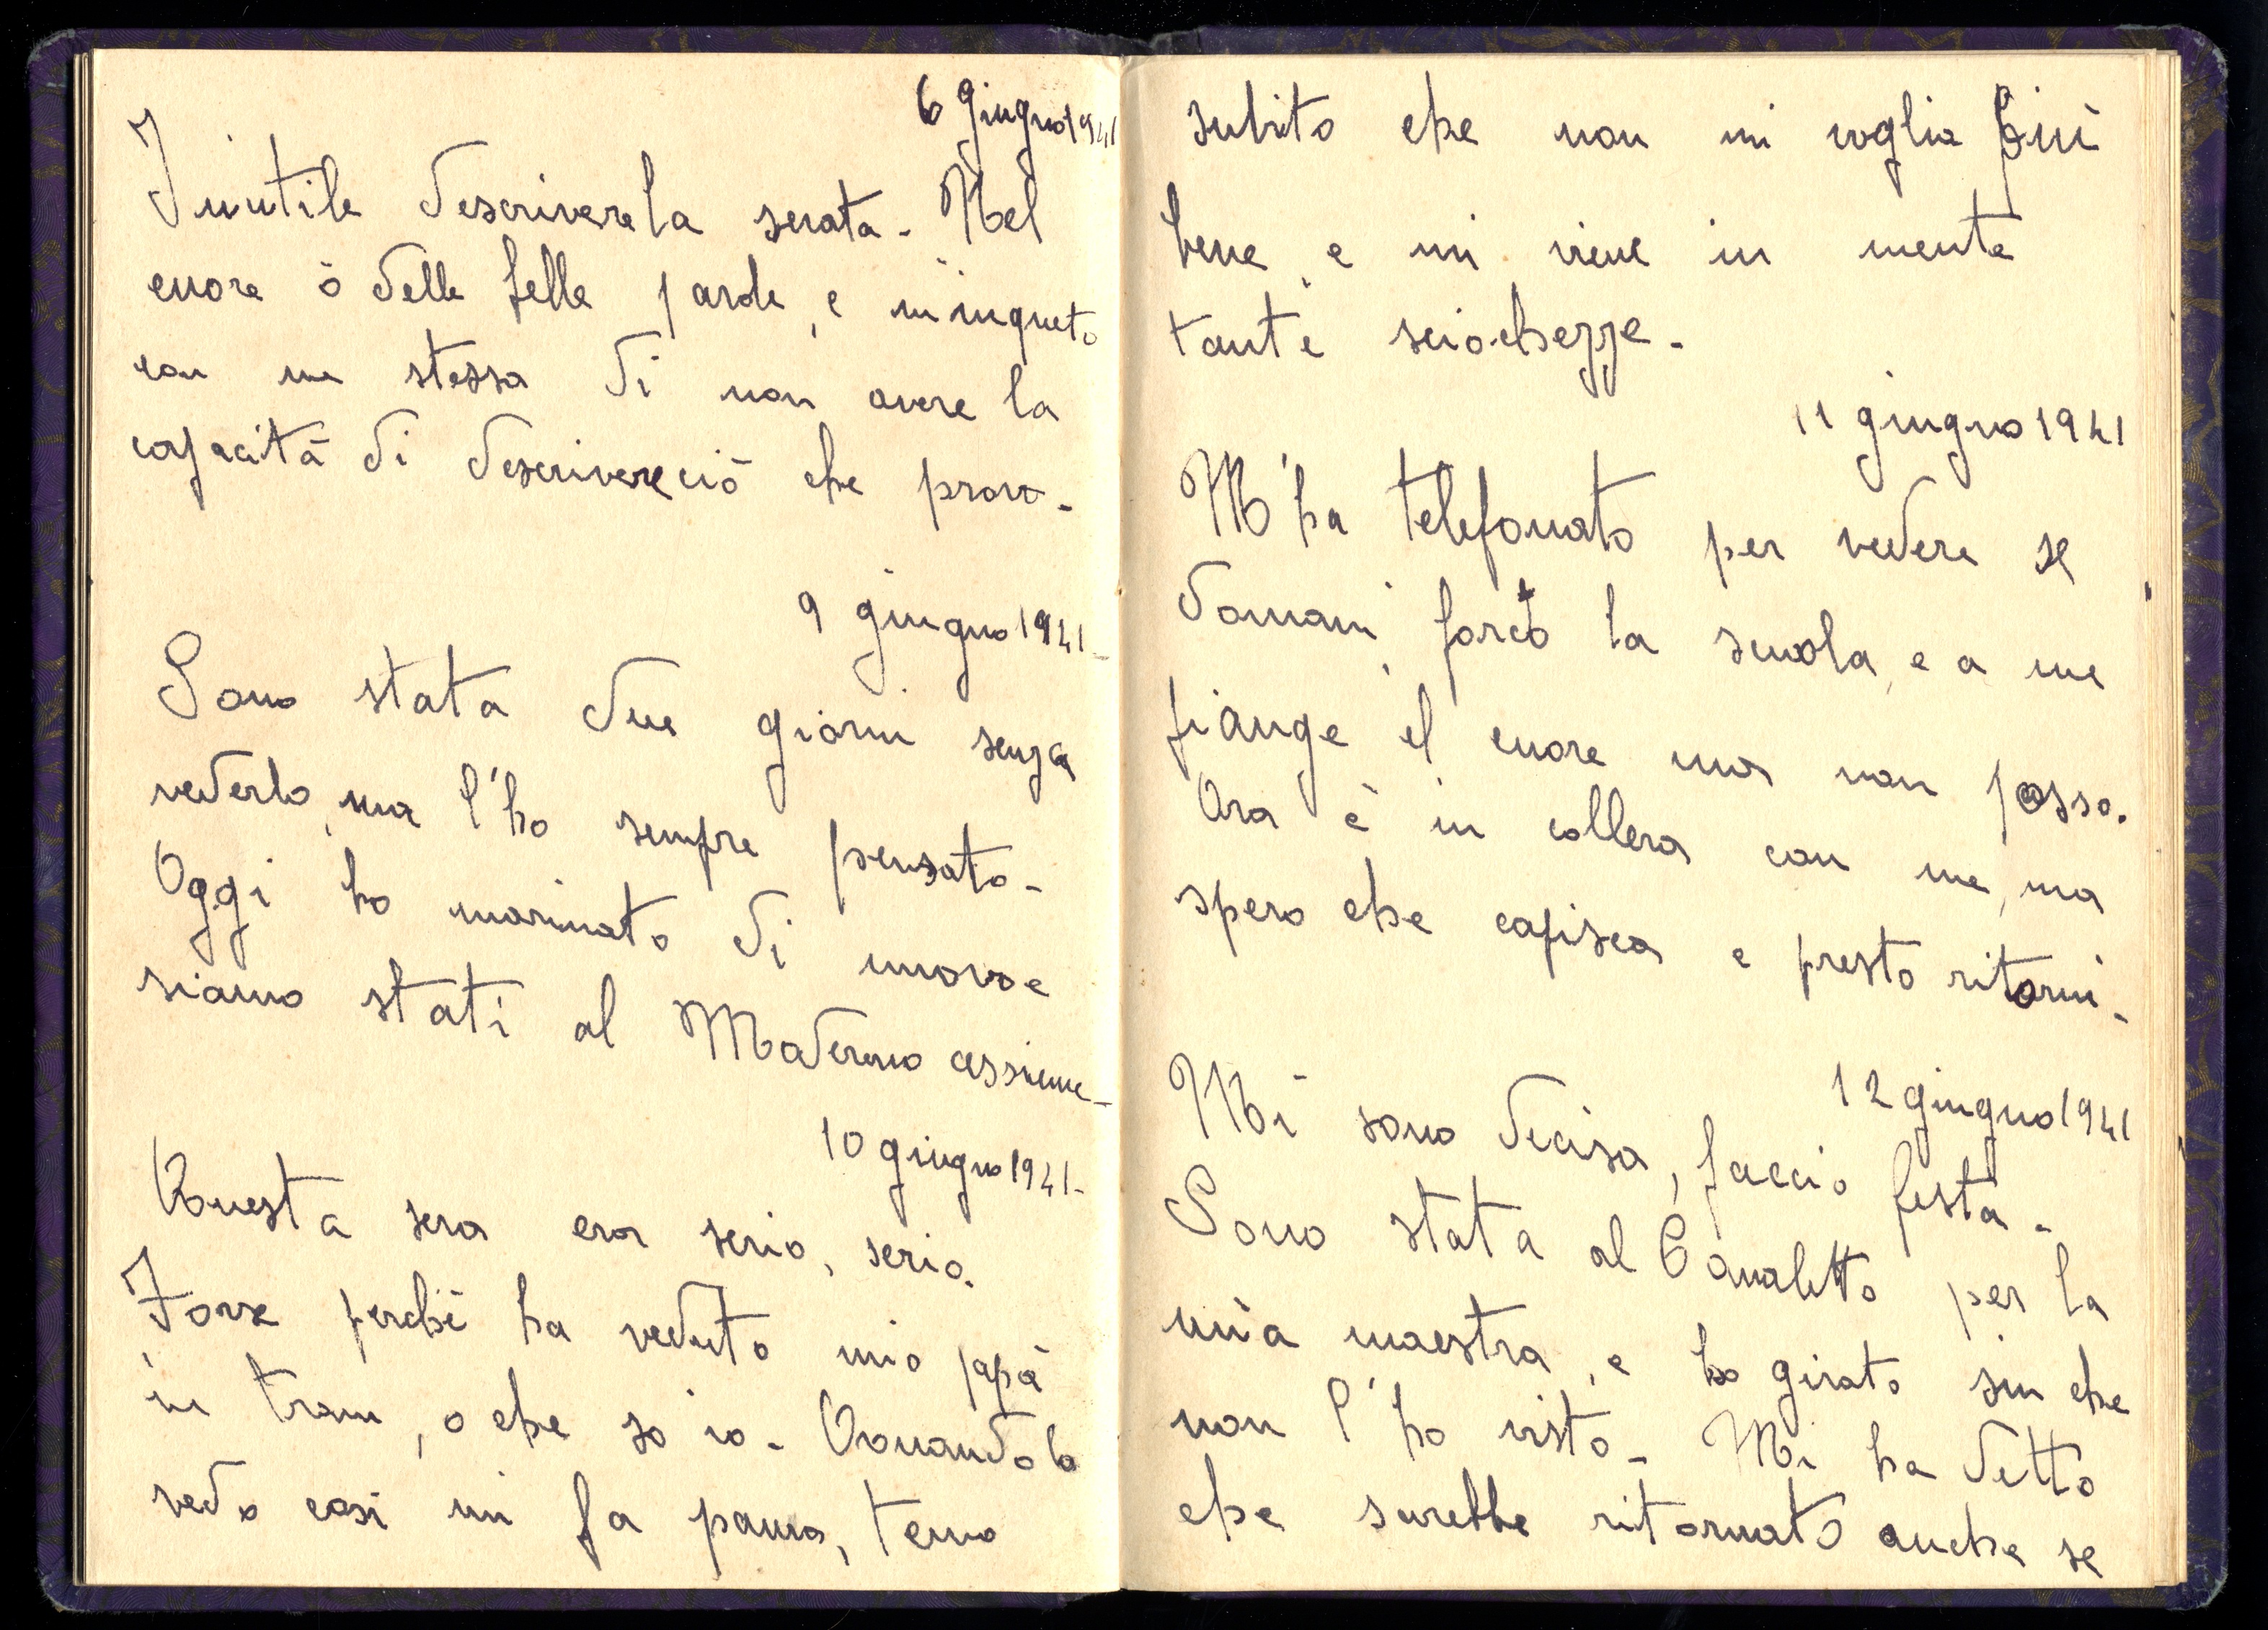 6 giugno 1941
Inutile descrivere la serata. Nel
cuore ò delle belle parole, e m'inqueto
con me stessa di non avere la
capacità di descrivere ciò che provo.
9 giugno 1941-
Sono stata due giorni senza
vederlo, ma l'ho sempre pensato-
Oggi ho marinato di nuovo e
siamo stati al Maderno assieme-
10 giugno 1941-
Questa sera era serio, serio.
Forse perché ha veduto mio papà
in tram, o che so io- Quando lo
vedo così mi fa paura, temo
subito che non mi voglia più
bene, e mi viene in mente
tante sciochezze-
11 giugno 1941
M'ha telefonato per vedere se
domani, forco la scuola, e a me
piange il cuore ma non posso.
Ora è in collera con me, ma
spero che capisca e presto ritorni-
12 giugno 1941
Mi sono decisa, faccio festa-
Sono stata al Canaletto per la
mia maestra, e ho girato sin che
non l'ho visto- Mi ha detto
che sarebbe ritornato anche se